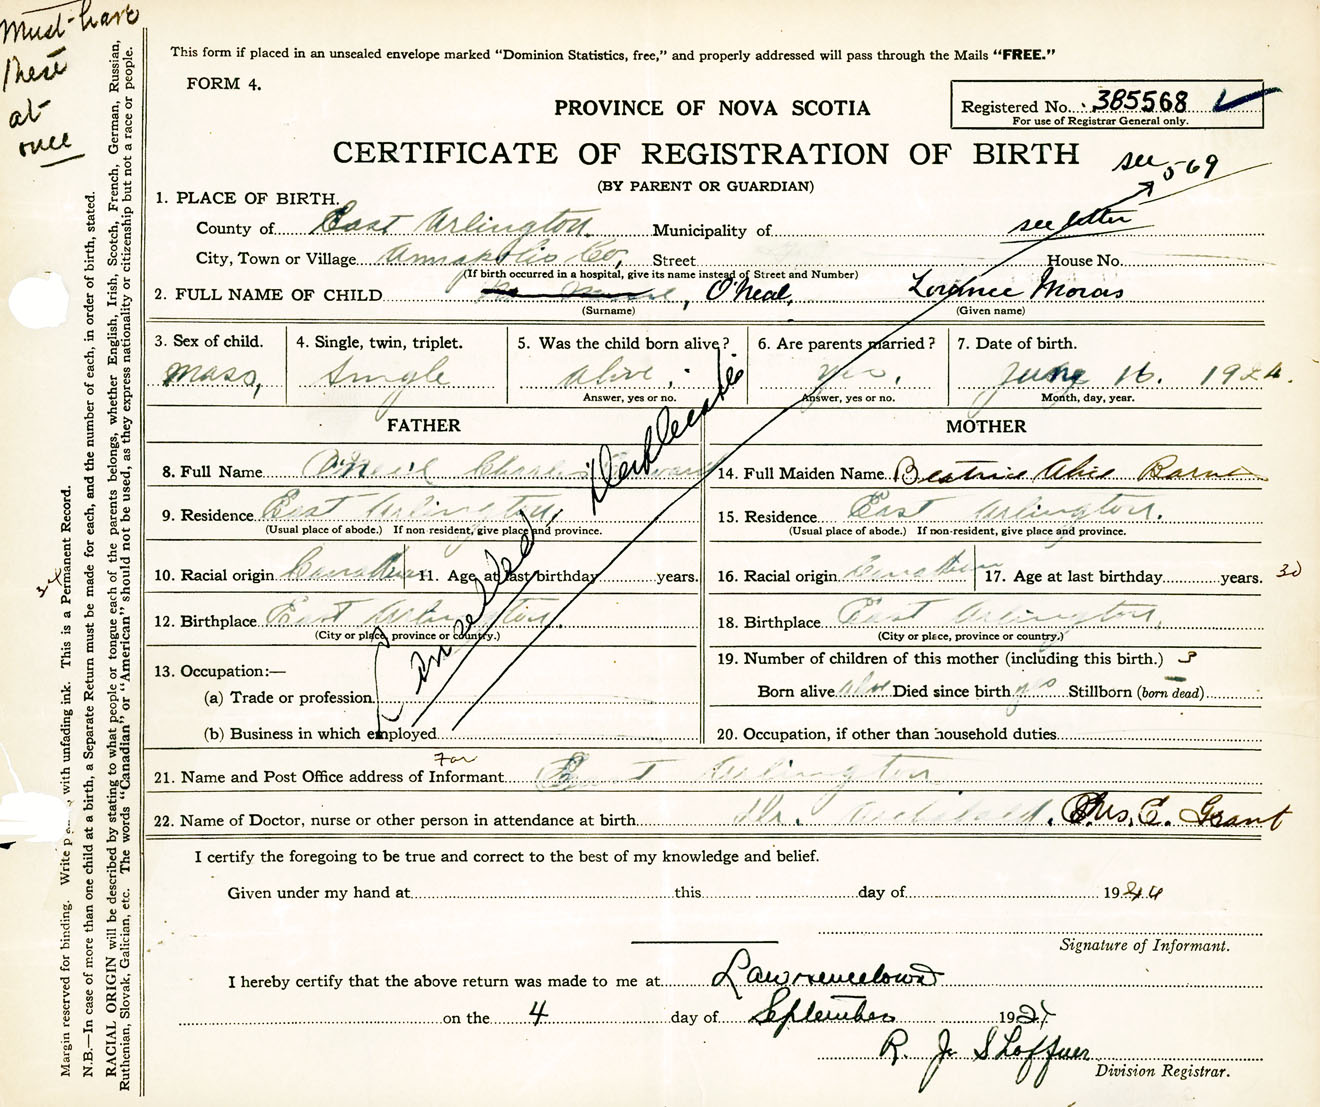 Must have
these
at
once
This form if placed in an unsealed envelope marked “Dominion Statistics, free,” and properly addressed will pass through the Mails “FREE.”
FORM 4.
PROVINCE OF NOVA SCOTIA
Registered No. 385568
For use of Registrar General only.
CERTIFICATE OF REGISTRATION OF BIRTH
see 569
(BY PARENT OR GUARDIAN)
1. PLACE OF BIRTH.
County of East Arlington. Municipality of see letter
City, Town or Village Annapolis Co, Street House No.
(If birth occurred in a hospital, give its name instead of Street and Number)
2. FULL NAME OF CHILD , O'Neal, Moras
(Surname) (Given name)
3. Sex of child. 4. Single, twin, triplet. 5. Was the child born alive? 6. Are parents married? 7. Date of birth.
Single alive yes, June 16. 1924.
Answer, yes or no. Answer, yes or no. Month, day, year.
FATHER MOTHER
8. Full Name O'Neil Charles 14. Full Maiden Name Beatrice Alice
9. Residence East Arlington, 15. Residence East Arlington.
(Usual place of abode.) If non-resident, give place and province. (Usual place of abode.) If non-resident, give place and province.
10. Racial origin 11. Age at last birthday years. 16. Racial origin 17. Age at last birthday years. 30
12. Birthplace East Arlington. 18. Birthplace East Arlington.
(City or place, province or country.) (City or place, province or country.)
13. Occupation:— 19. Number of children of this mother (including this birth.) 3
(a) Trade or profession Born alive Died since birth Stillborn (born dead)
(b) Business in which employed 20. Occupation, if other than household duties
Cancelled
21. Name and Post Office address of Informant East Arlington
22. Name of Doctor, nurse or other person in attendance at birth Dr. Archibald. Mrs. E. Grant
I certify the foregoing to be true and correct to the best of my knowledge and belief.
Given under my hand at this day of 19
Signature of Informant.
I hereby certify that the above return was made to me at Lawrencetown
on the 4 day of September 192
R. J. Shaffner
Division Registrar.
Margin reserved for binding. Write with unfading ink. This is a Permanent Record.
N.B.—In case of more than one child at a birth, a Separate Return must be made for each, and the number of each, in order of birth, stated.
RACIAL ORIGIN will be described by stating to what people or tongue each of the parents belongs, whether English, Irish, Scotch, French, German, Russian,
Ruthenian, Slovak, Galician, etc. The words “Canadian” or “American” should not be used, as they express nationality or citizenship but not a race or people.